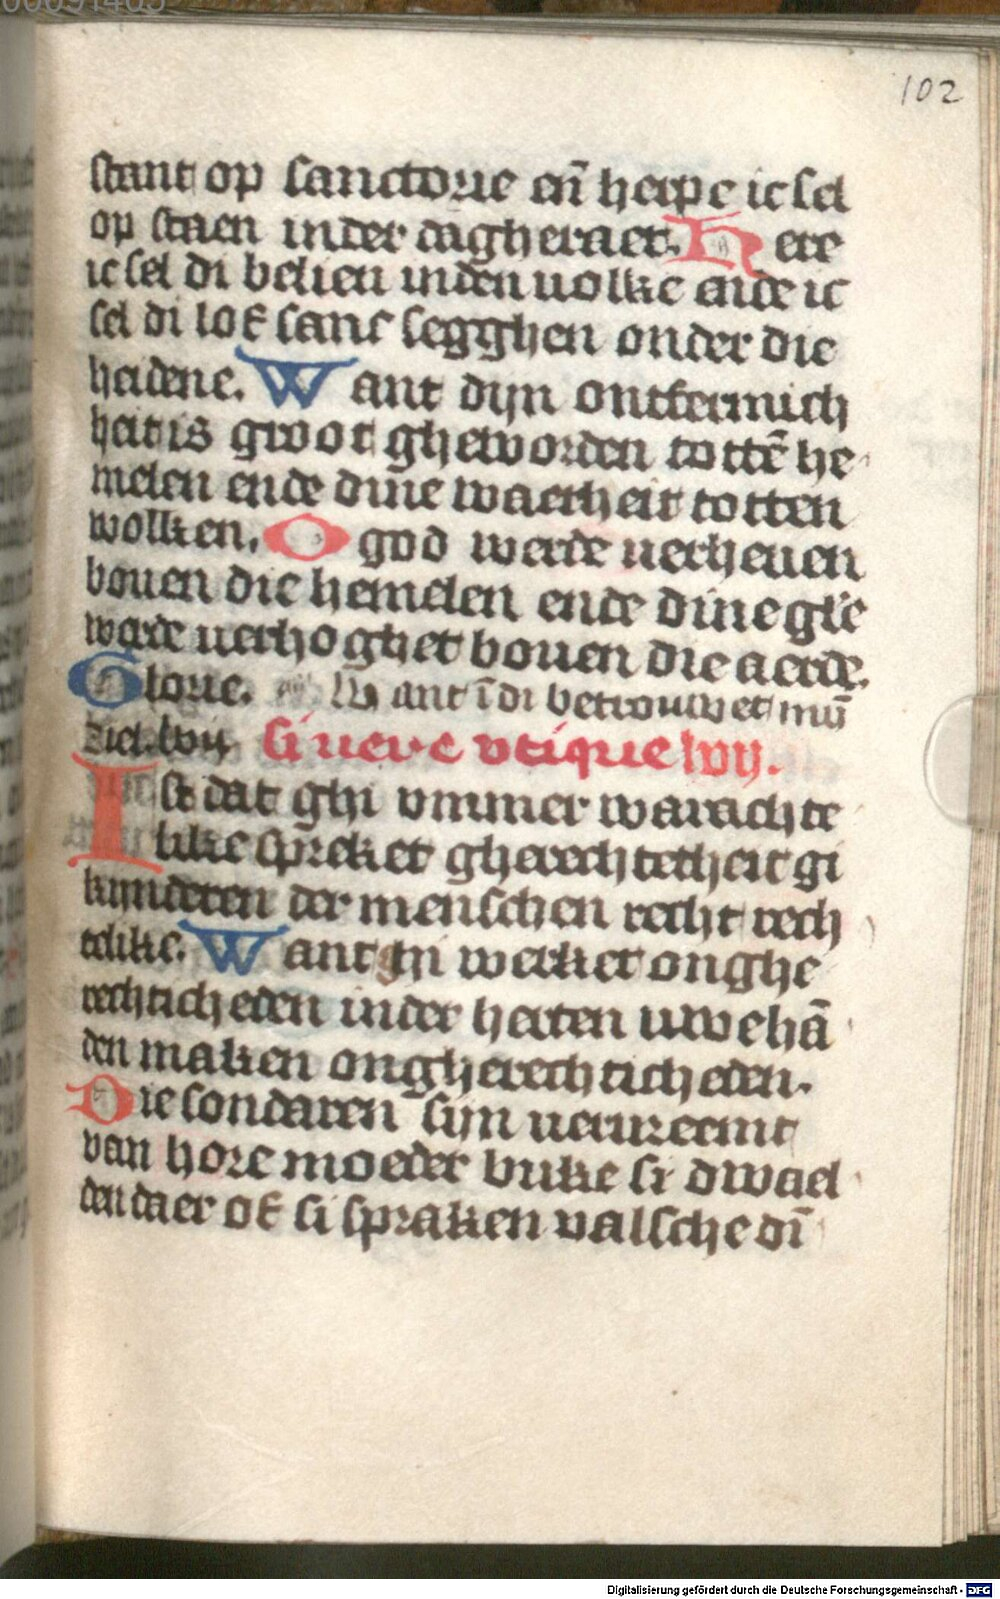 00091405
102
stant op sanctorie eñ herpe ic sel
op staen inder dagheraet. Here
ic sel di belien inden uolke ende ic
sel di lof sanc segghen onder die
heidene. Want dijn ontfermich
heit is groot gheworden tottē he
melen ende dine waerheit totten
wolken. O god werde uerheuen
bouen die hemelen ende dine gl'ie
werde uerhoghet bouen die aerde.
Glorie. Want ī di betrouwet mijn̄
ziel. lvij Si uere vtique lvij.
Ist dat ghi vmmer warachte
like spreket gherechtecheit gi
kinderen der menschen recht rech
telike. Want ghi werket onghe
rechticheden inder herten uwe hā
den maken ongherechticheden.
Die sondaren sijn uerureemt
van hore moeder buke si dwael
den daer of si spraken valsche dī
Digitalisierung gefördert durch die Deutsche Forschungsgemeinschaft - DFG